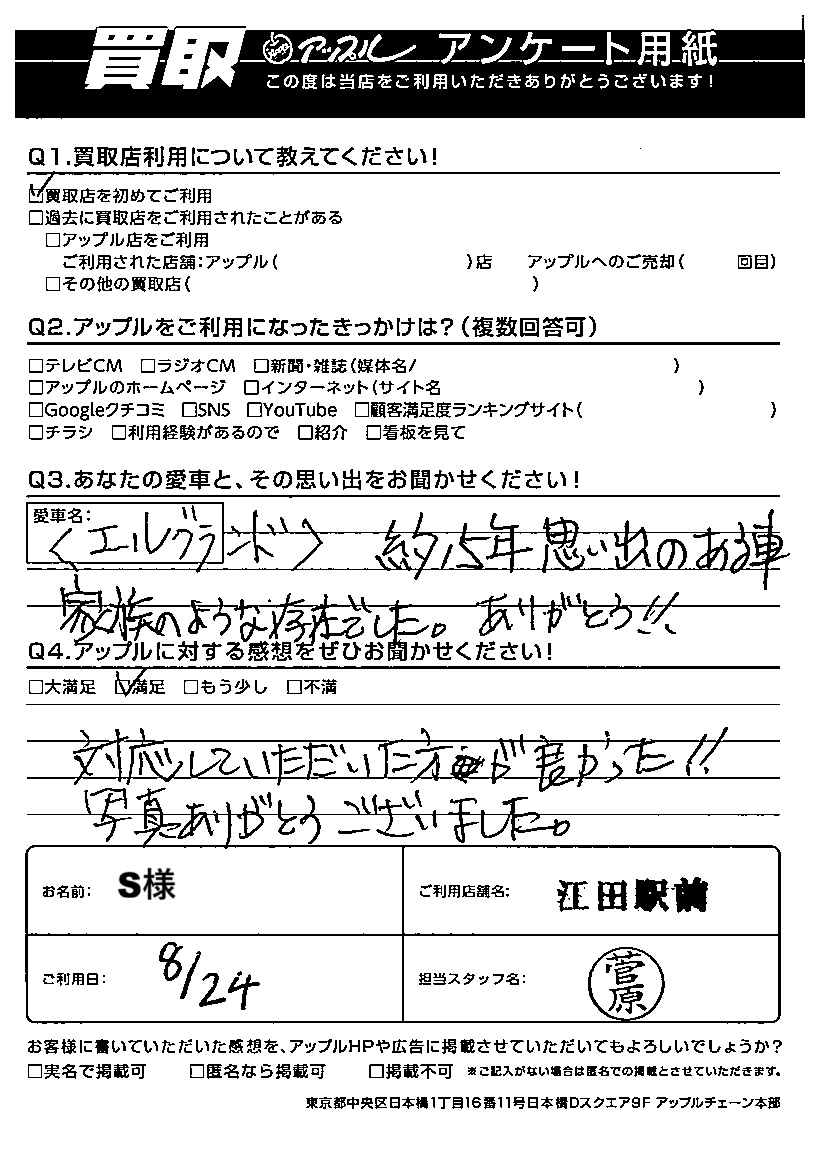 買取 アップル アンケート用紙
この度は当店をご利用いただきありがとうございます!
Q1.買取店利用について教えてください!
☑買取店を初めてご利用
□過去に買取店をご利用されたことがある
□アップル店をご利用
ご利用された店舗:アップル( )店 アップルへのご売却( 回目)
□その他の買取店( )
Q2.アップルをご利用になったきっかけは?(複数回答可)
□テレビCM □ラジオCM □新聞・雑誌(媒体名/ )
□アップルのホームページ □インターネット(サイト名 )
□Googleクチコミ □SNS □YouTube □顧客満足度ランキングサイト( )
□チラシ □利用経験があるので □紹介 □看板を見て
Q3.あなたの愛車と、その思い出をお聞かせください!
愛車名:
〈エルグランド〉 約15年思い出のある車
家族のような存在でした。ありがとう!!
Q4.アップルに対する感想をぜひお聞かせください!
□大満足 ☑満足 □もう少し □不満
対応していただいた方が良かった!!
写真ありがとうございました。
お名前: S様 ご利用店舗名: 江田駅前
ご利用日: 8/24 担当スタッフ名: 菅原
お客様に書いていただいた感想を、アップルHPや広告に掲載させていただいてもよろしいでしょうか?
□実名で掲載可 □匿名なら掲載可 □掲載不可 ※ご記入がない場合は匿名での掲載とさせていただきます。
東京都中央区日本橋1丁目16番11号日本橋Dスクエア9F アップルチェーン本部